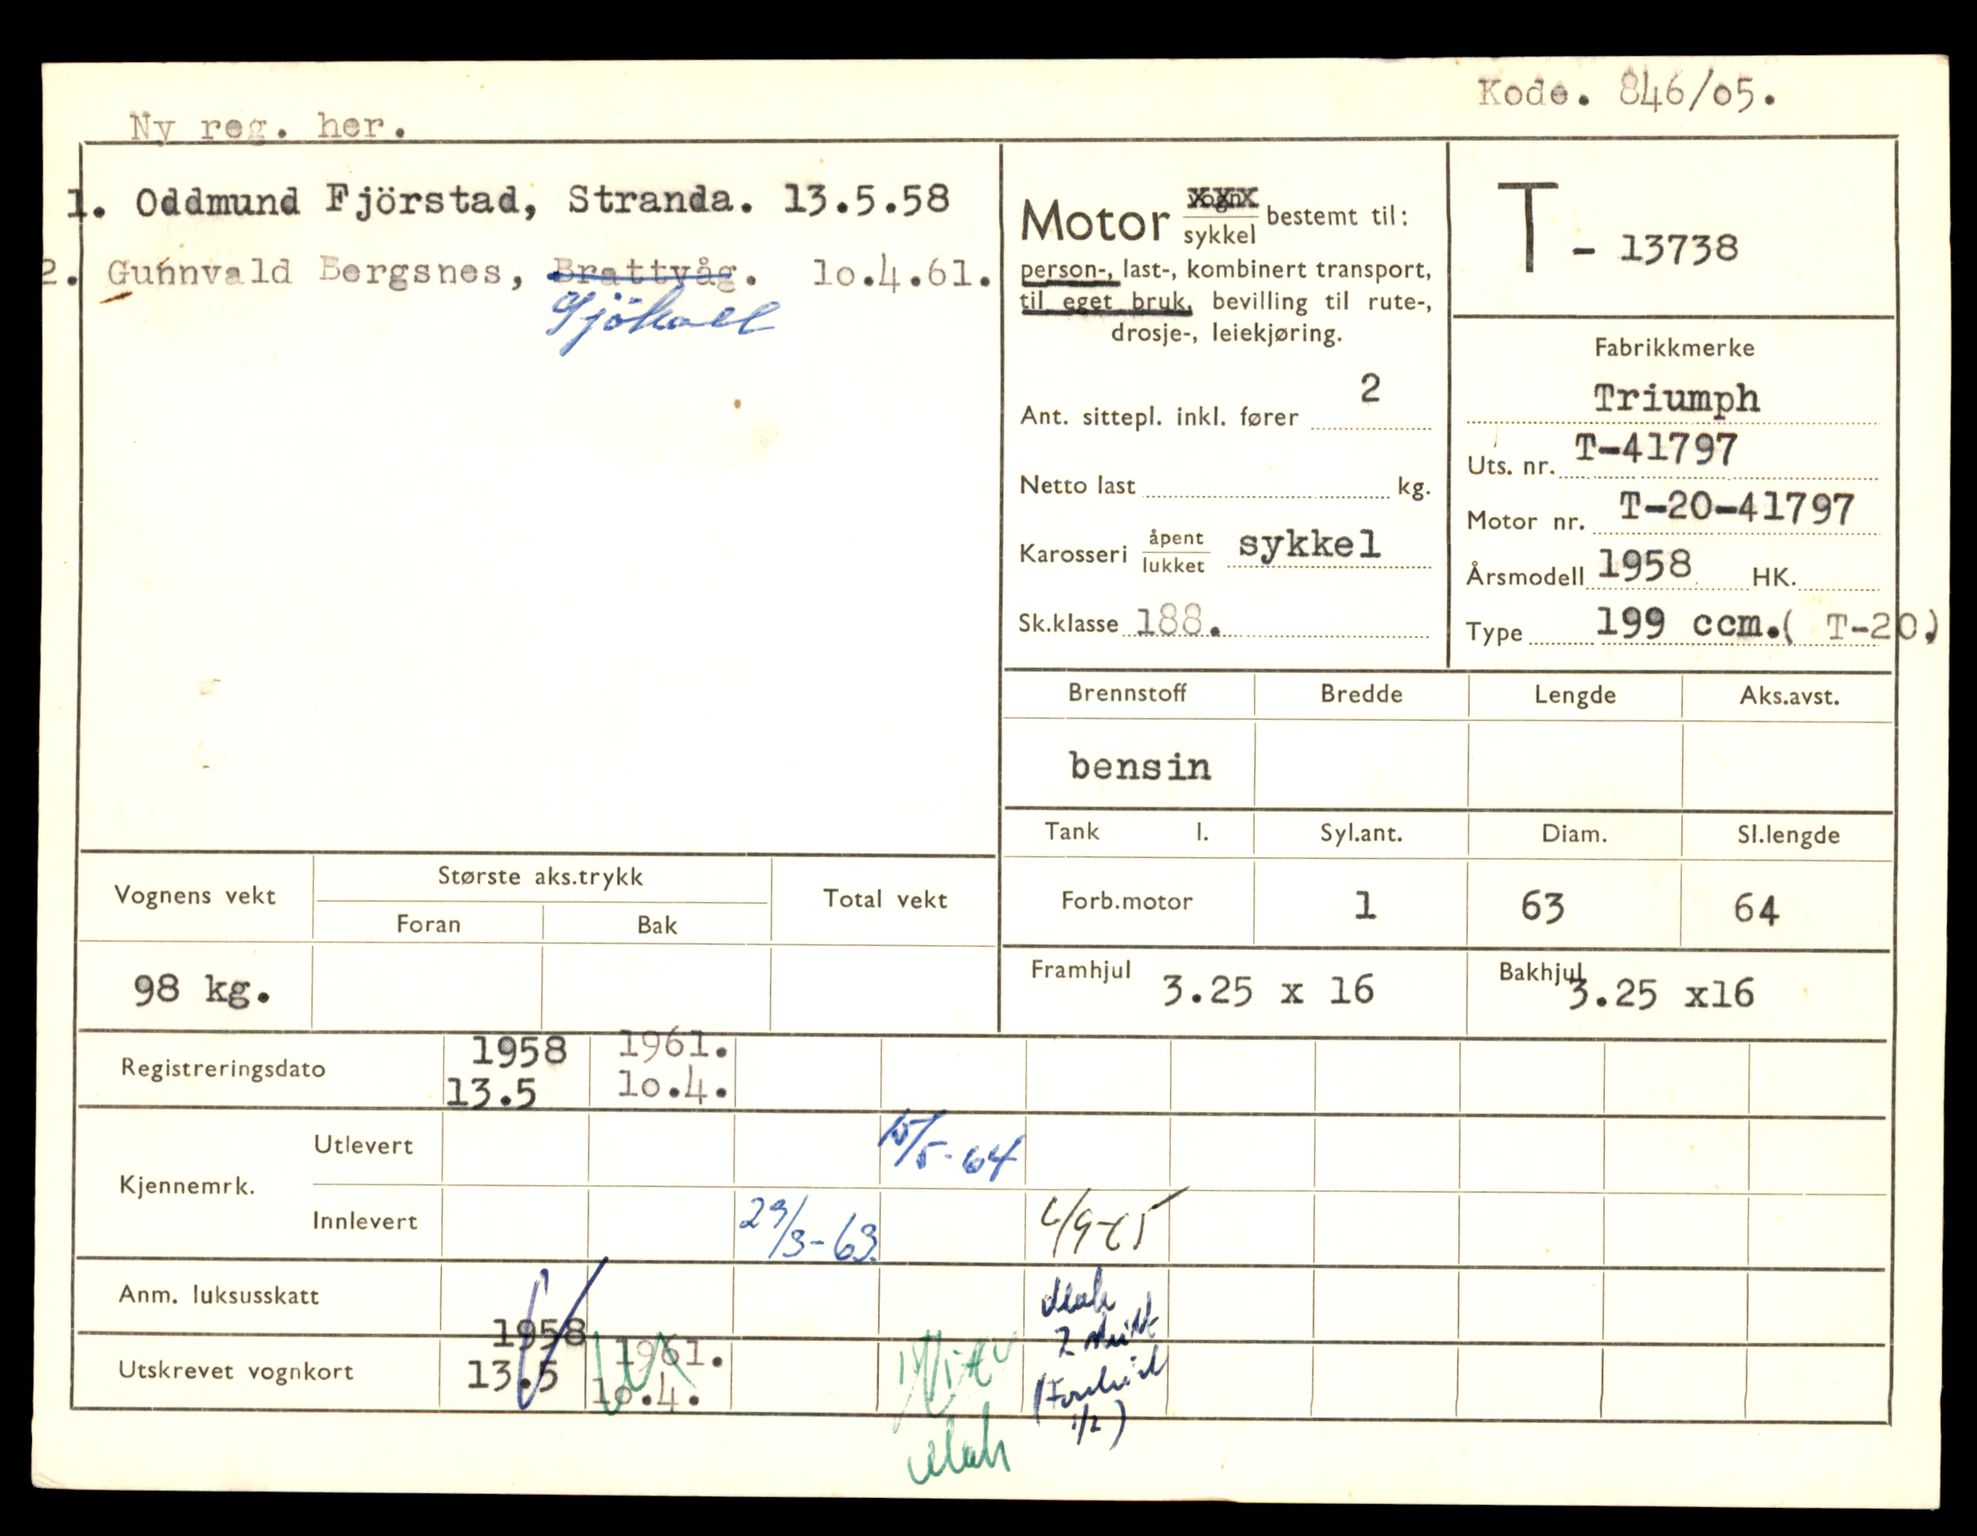 Kode. 846/05.
Ny reg. her.
1. Oddmund Fjörstad, Stranda. 13.5.58
2. Gunnvald Bergsnes, Brattvåg. 10.4.61.
Motor vogn/sykkel bestemt til:
person-, last-, kombinert transport,
til eget bruk, bevilling til rute-,
drosje-, leiekjøring.
Ant. sittepl. inkl. fører 2
Netto last kg.
Karosseri åpent/lukket sykkel
Sk.klasse 188.
T - 13738
Fabrikkmerke
Triumph
Uts. nr. T-41797
Motor nr. T-20-41797
Årsmodell 1958 HK.
Type 199 ccm. ( T-20)
Brennstoff Bredde Lengde Aks.avst.
bensin
Tank l. Syl.ant. Diam. Sl.lengde
Forb.motor 1 63 64
Framhjul 3.25 x 16 Bakhjul 3.25 x16
Vognens vekt Største aks.trykk Total vekt
Foran Bak
98 kg.
Registreringsdato 1958 1961.
13.5 10.4.
Kjennemrk.
Utlevert 15/5-64
Innlevert 29/3-63.
Anm. luksusskatt
Utskrevet vognkort 1958 1961.
13.5 10.4.